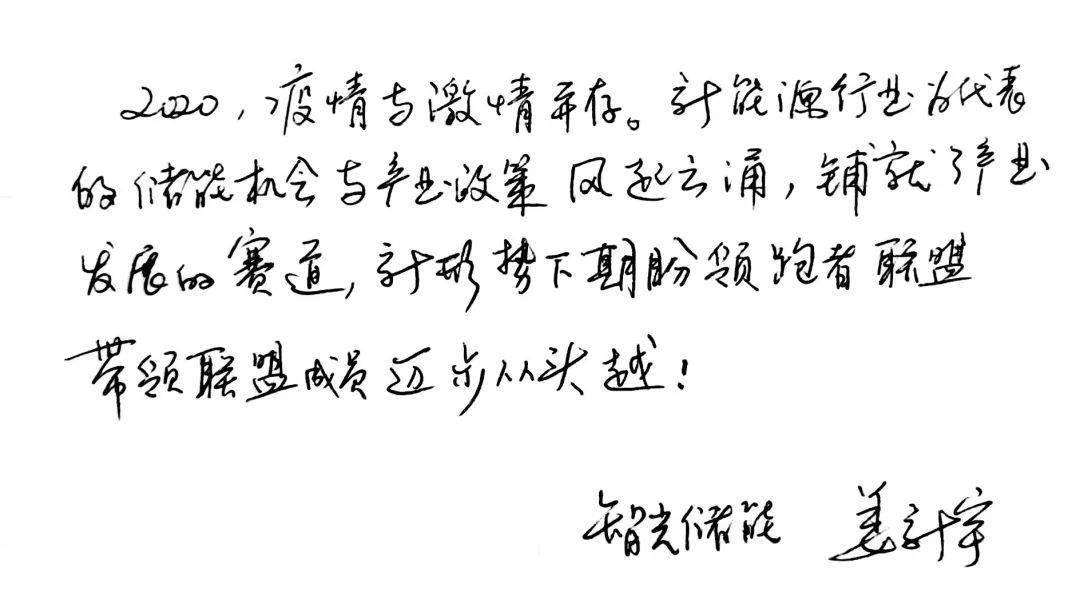 2020，疫情与激情并存。新能源行业为代表
的储能机会与产业政策风起云涌，铺就了产业
发展的赛道，新形势下期盼领跑者联盟
带领联盟成员迈步从头越！
智光储能 姜新宇